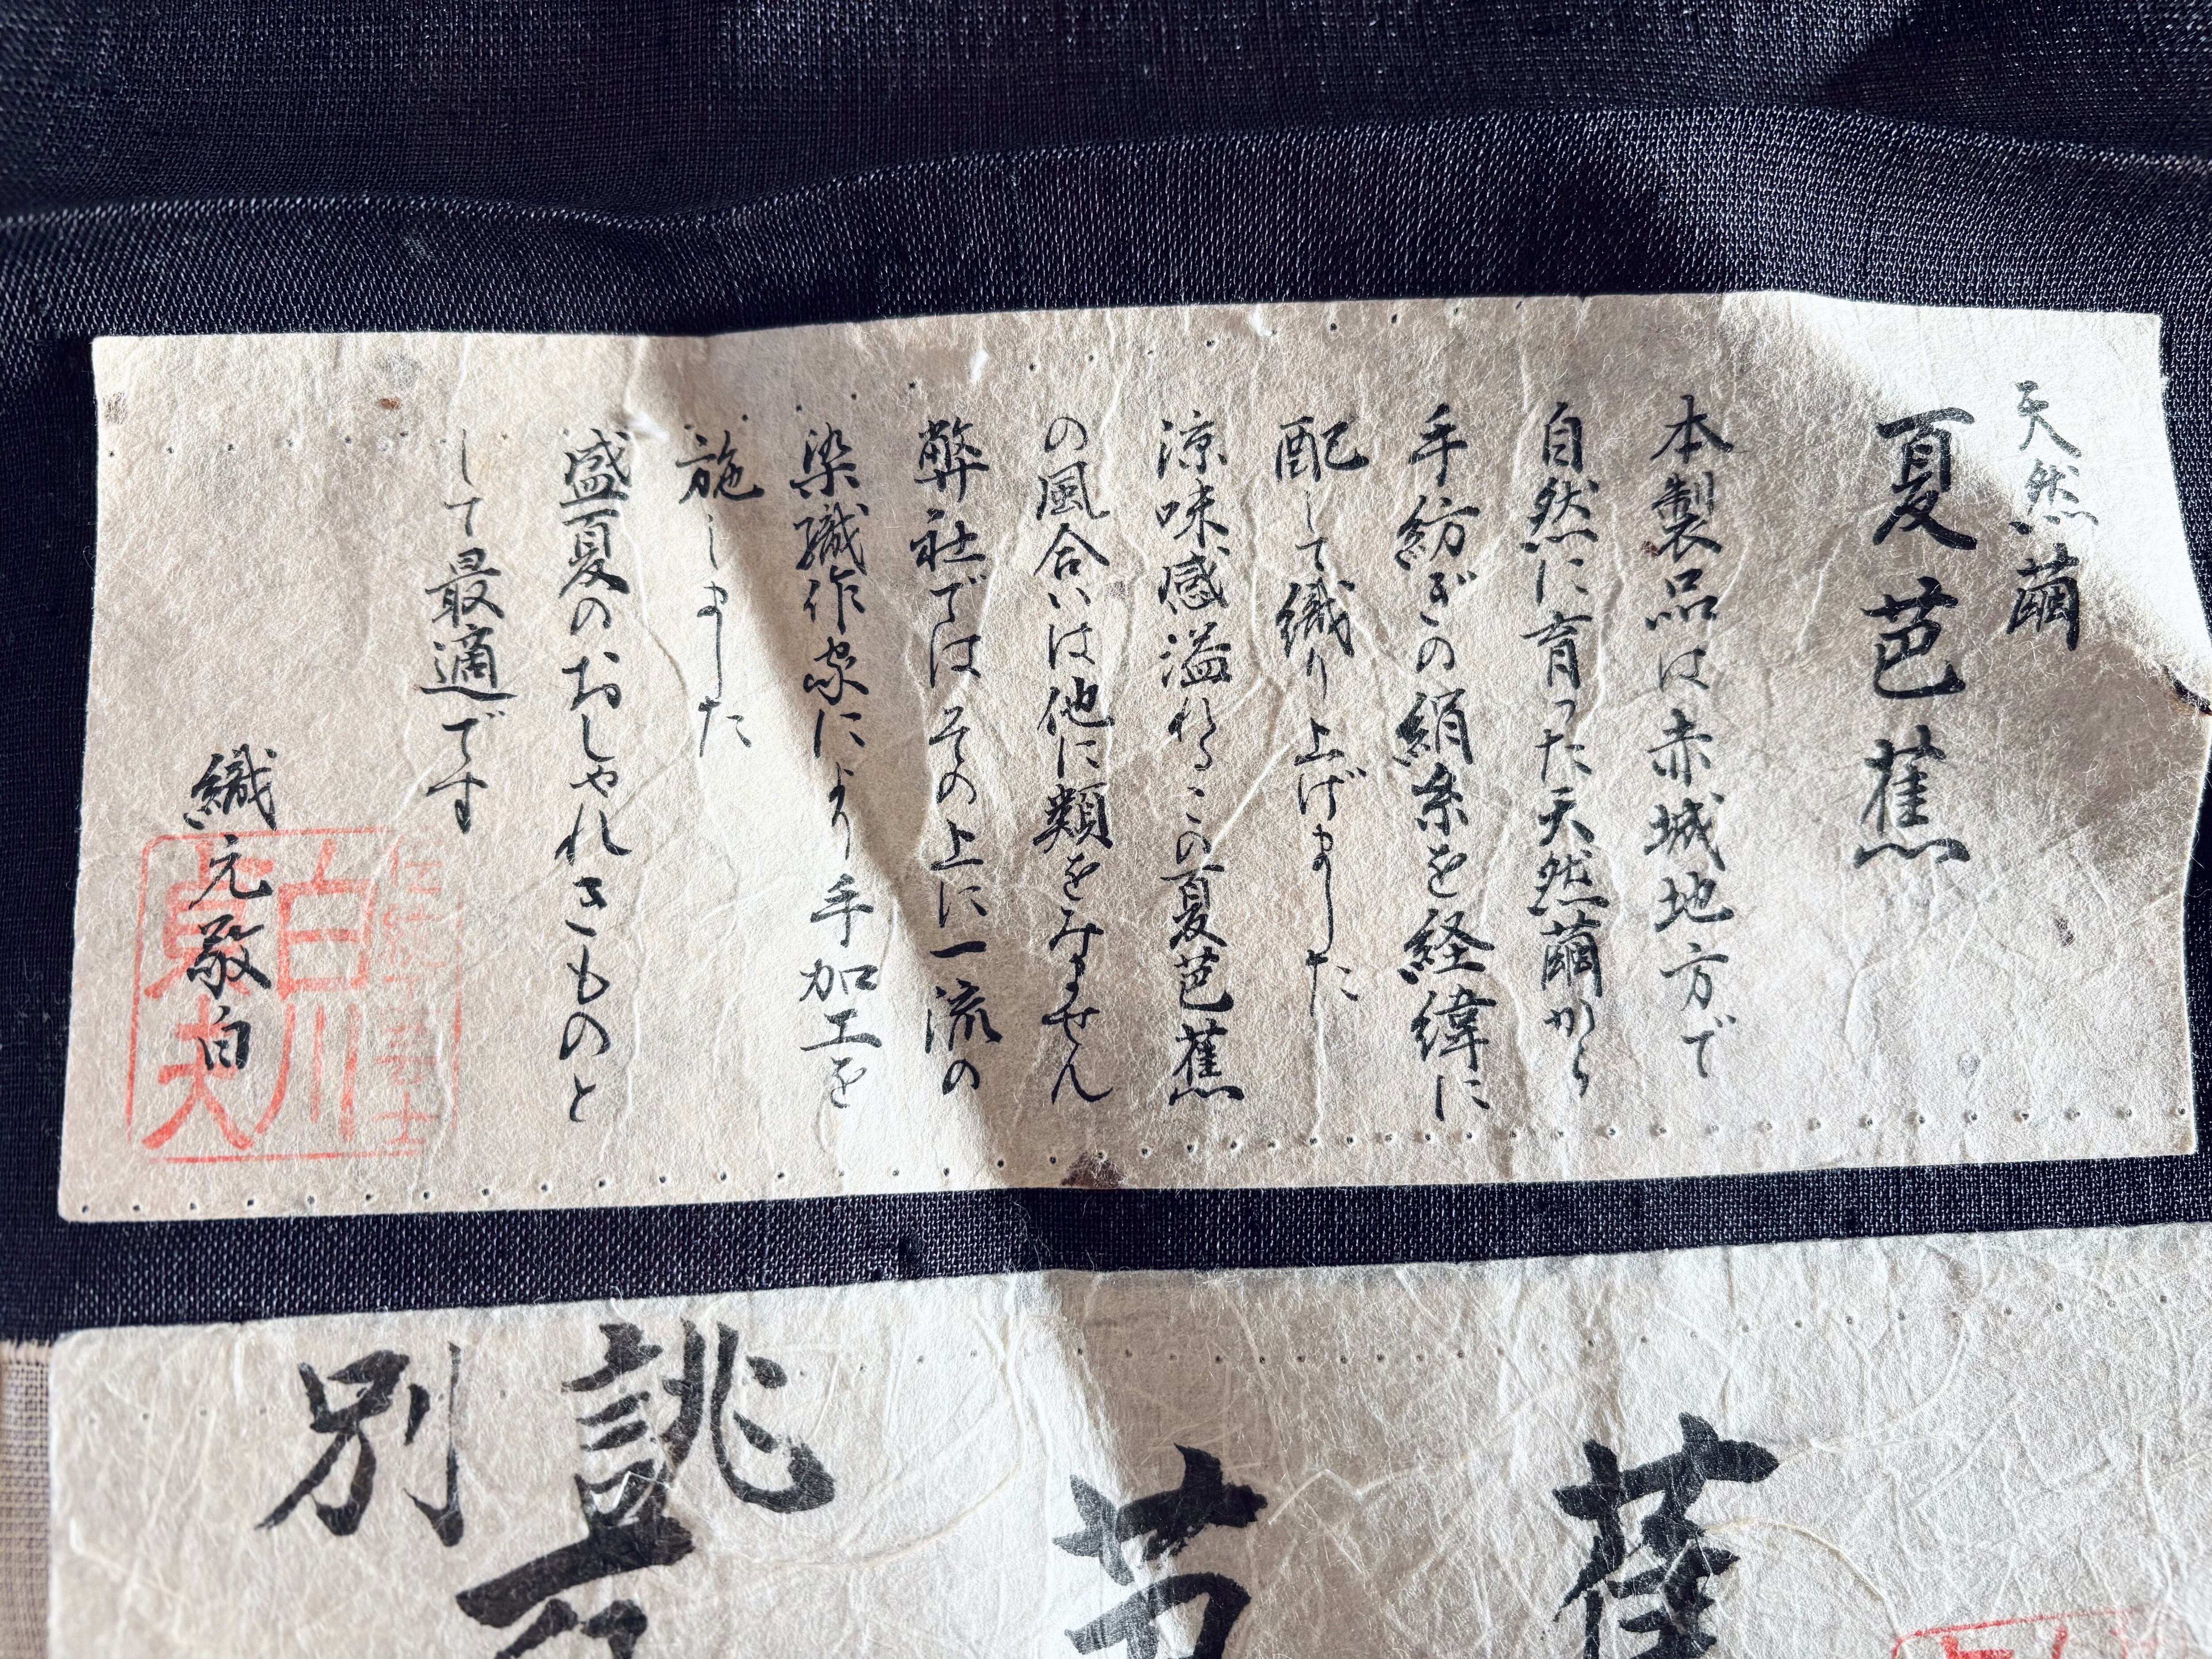 天然繭
夏芭蕉
本製品は赤城地方で
自然に育った天然繭から
手紡ぎの絹糸を経緯に
配して織り上げました
涼味感溢れるこの夏芭蕉
の風合いは他に類をみません
弊社ではその上に一流の
染織作家により手加工を
施しました
盛夏のおしゃれきものと
して最適です
織元敬白
白川
貞夫
誂
別